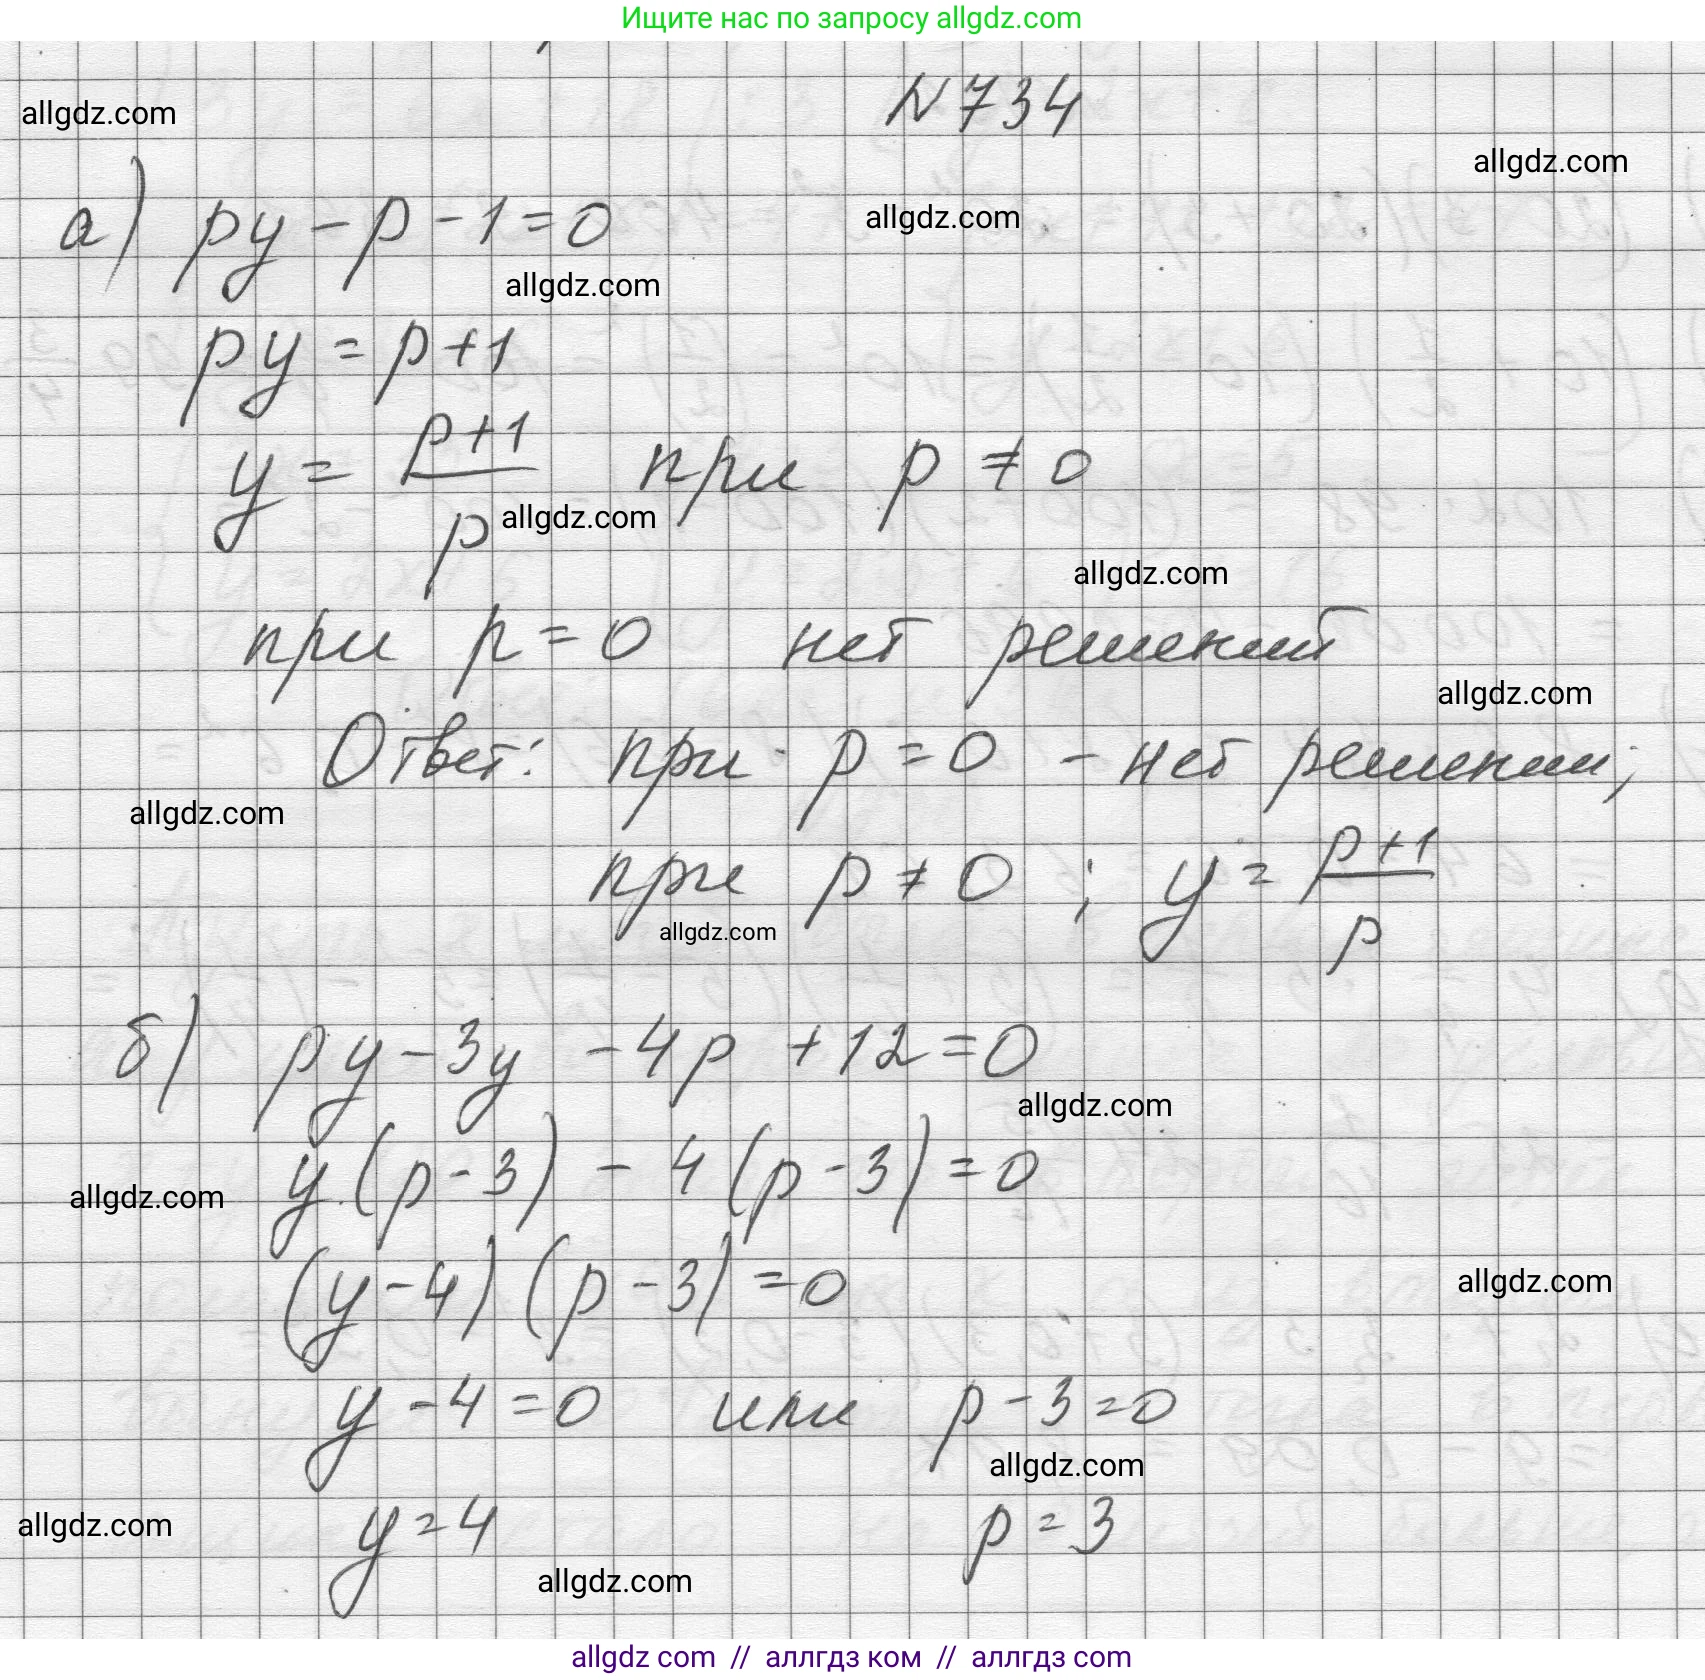 Ищите нас по запросу allgdz.com
N 734
allgdz.com
allgdz.com
а) py - p - 1 = 0
allgdz.com
allgdz.com
py = p + 1
y = \frac{p+1}{p} при p ≠ 0
allgdz.com
allgdz.com
при p = 0 нет решений
allgdz.com
Ответ: при p = 0 - нет решений;
allgdz.com
при p ≠ 0 ; y = \frac{p+1}{p}
allgdz.com
б) py - 3y - 4p + 12 = 0
allgdz.com
y (p - 3) - 4 (p - 3) = 0
allgdz.com
(y - 4) (p - 3) = 0
allgdz.com
y - 4 = 0 или p - 3 = 0
allgdz.com
y = 4 p = 3
allgdz.com
allgdz.com
allgdz com // аллгдз ком // аллгдз com